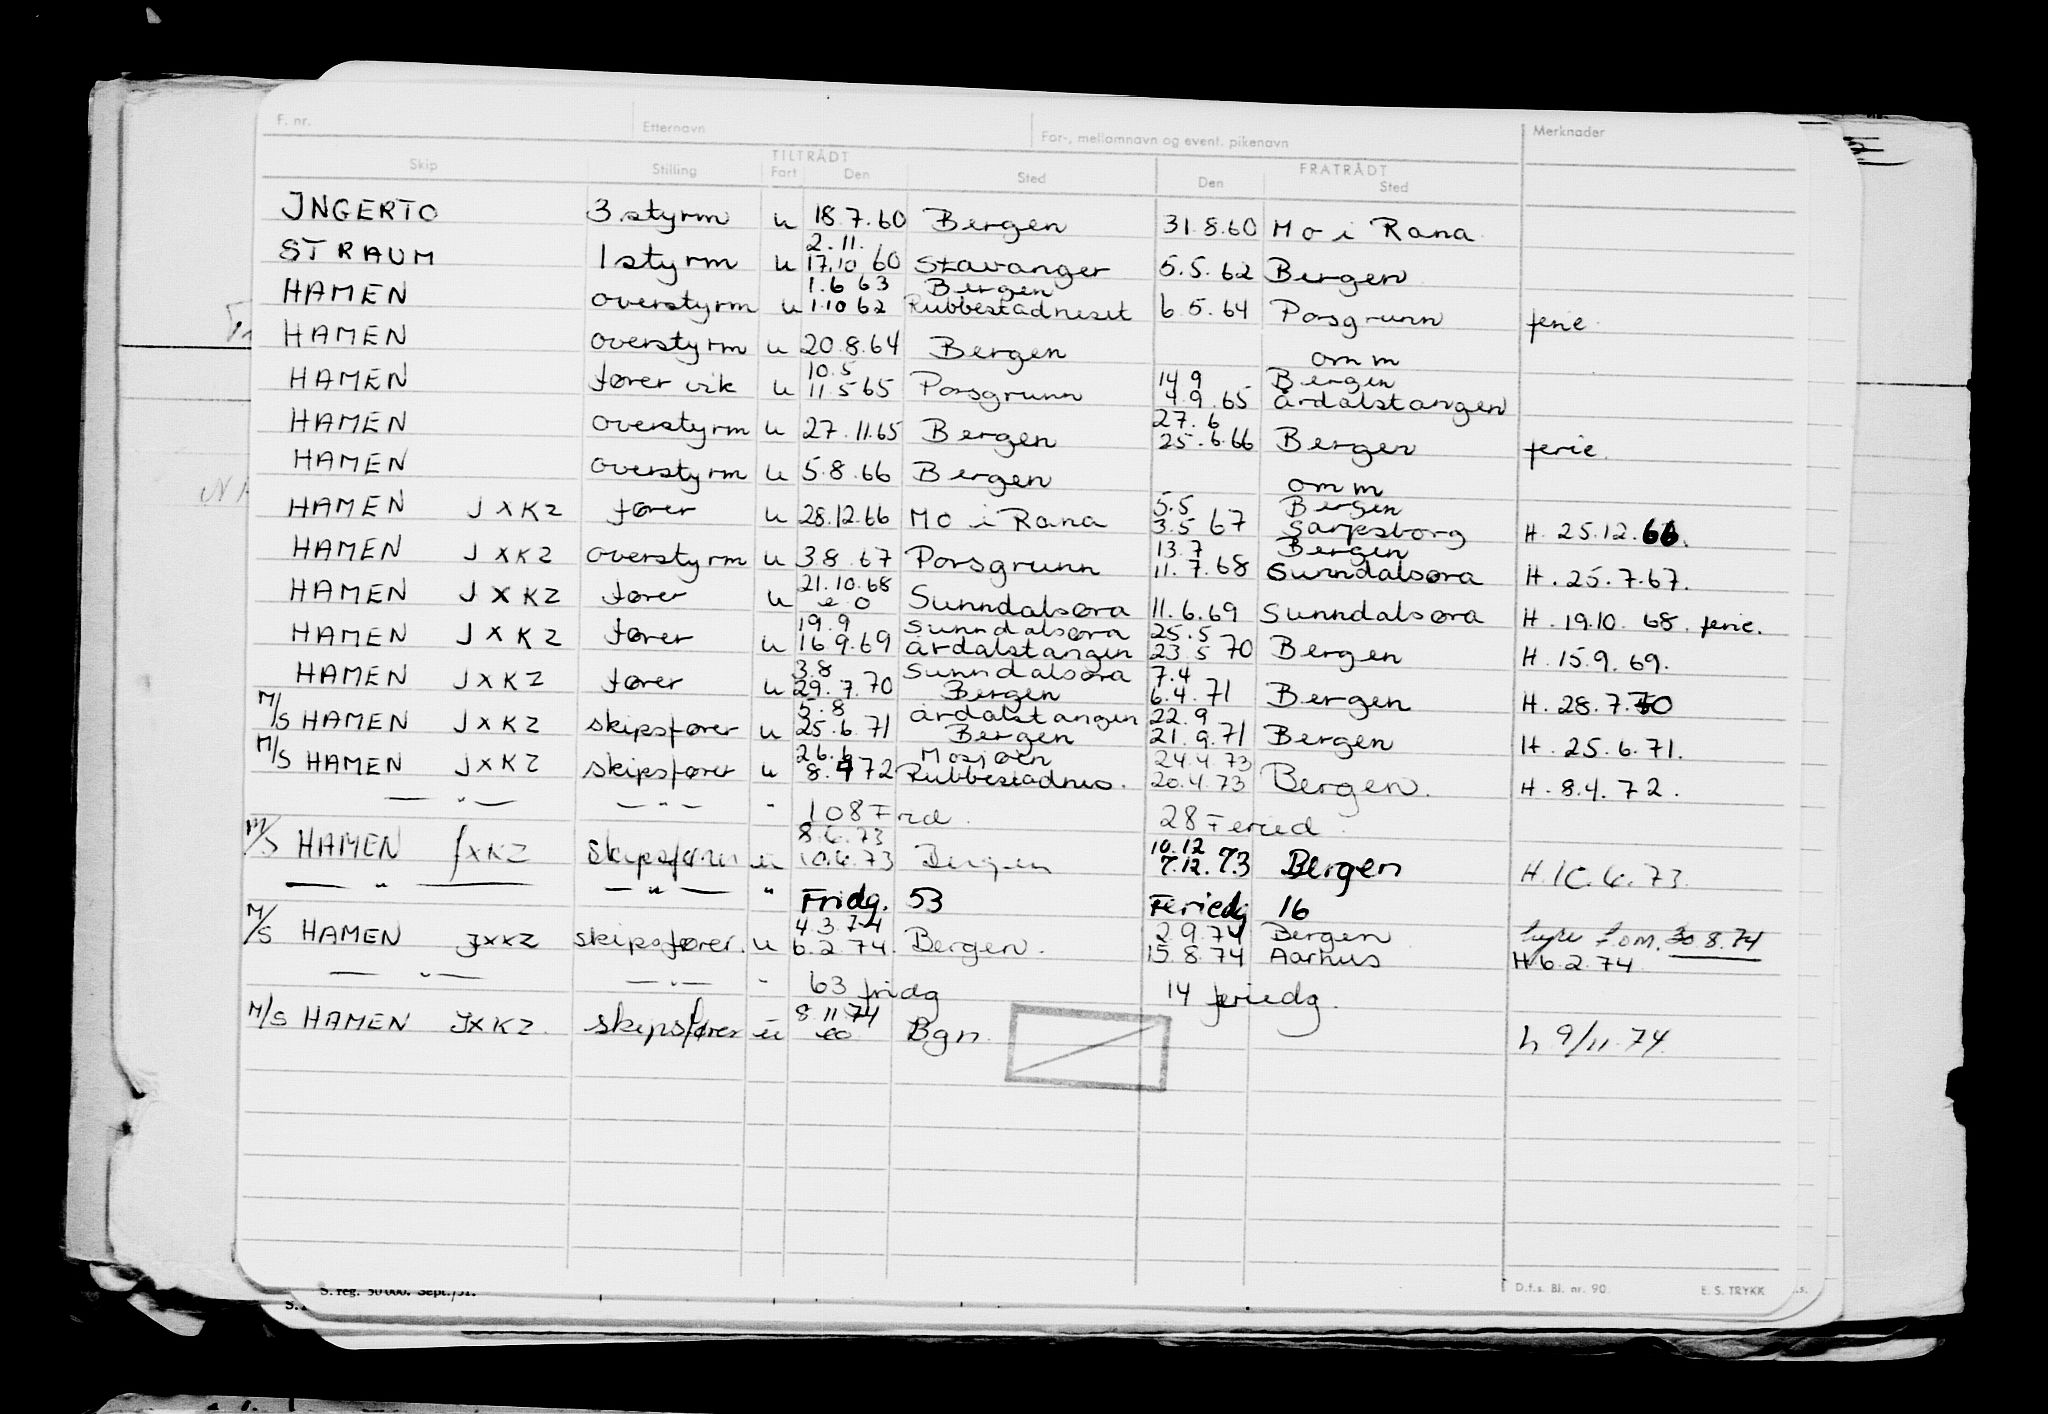 F. nr. Etternavn For-, mellomnavn og event. pikenavn Merknader
Skip Stilling TILTRÅDT Fart Den Sted FRATRÅDT Den Sted
INGERTO 3 styrm u 18.7.60 Bergen 31.8.60 Mo i Rana
2.11.
STRAUM 1 styrm u 17.10 60 Stavanger 5.5.62 Bergen
1.6 63 Bergen
HAMEN overstyrm u 1.10 62 Rubbestadneset 6.5.64 Porsgrunn ferie
HAMEN overstyrm u 20.8.64 Bergen om m
10.5 14 9 Bergen
HAMEN fører vik u 11.5 65 Porsgrunn 4.9.65 årdalstangen
27.6
HAMEN overstyrm u 27.11.65 Bergen 25.6.66 Bergen ferie.
HAMEN overstyrm u 5.8.66 Bergen om m
5.5 Bergen
HAMEN JXKZ fører u 28.12.66 Mo i Rana 3.5 67 Sarpsborg H. 25.12.66.
13.7 Bergen
HAMEN JXKZ overstyrm u 3.8.67 Porsgrunn 11.7.68 Sunndalsøra H. 25.7.67.
21.10.68
HAMEN JXKZ fører u e o Sunndalsøra 11.6.69 Sunndalsøra H. 19.10.68. ferie.
19.9 Sunndalsøra 25.5
HAMEN JXKZ fører u 16.9.69 årdalstangen 23.5 70 Bergen H. 15.9.69.
3.8 Sunndalsøra 7.4
HAMEN JXKZ fører u 29.7.70 Bergen 6.4.71 Bergen H. 28.7.70
5.8 årdalstangen 22.9
M/S HAMEN JXKZ skipsfører u 25.6.71 Bergen 21.9.71 Bergen H. 25.6.71.
26.6 Mosjøen 24.4.73
M/S HAMEN JXKZ skipsfører u 8.4 72 Rubbestadnes. 20.4.73 Bergen. H. 8.4.72.
— " — — " — " 108 Frid. 28 Feried.
8.6.73 10.12
M/S HAMEN JXKZ Skipsfører u 10.6.73 Bergen 7.12.73 Bergen H. 10.6.73.
— " — — " — " Fridg. 53 Feriedg 16
4.3.74 2 9.74 Bergen f.om. 30 8.74
M/S HAMEN JXKZ skipsfører. u 6.2.74. Bergen. 15 8.74 Aarhus H 6.2.74
— " — — " — " 63 fridg 14 feriedg.
8.11.74
M/S HAMEN JXKZ. skipsfører u eo Bgn. h 9/11.74.
D.f.s. Bl. nr. 90. E. S. TRYKK
S. reg. 50 000. Sept./51.